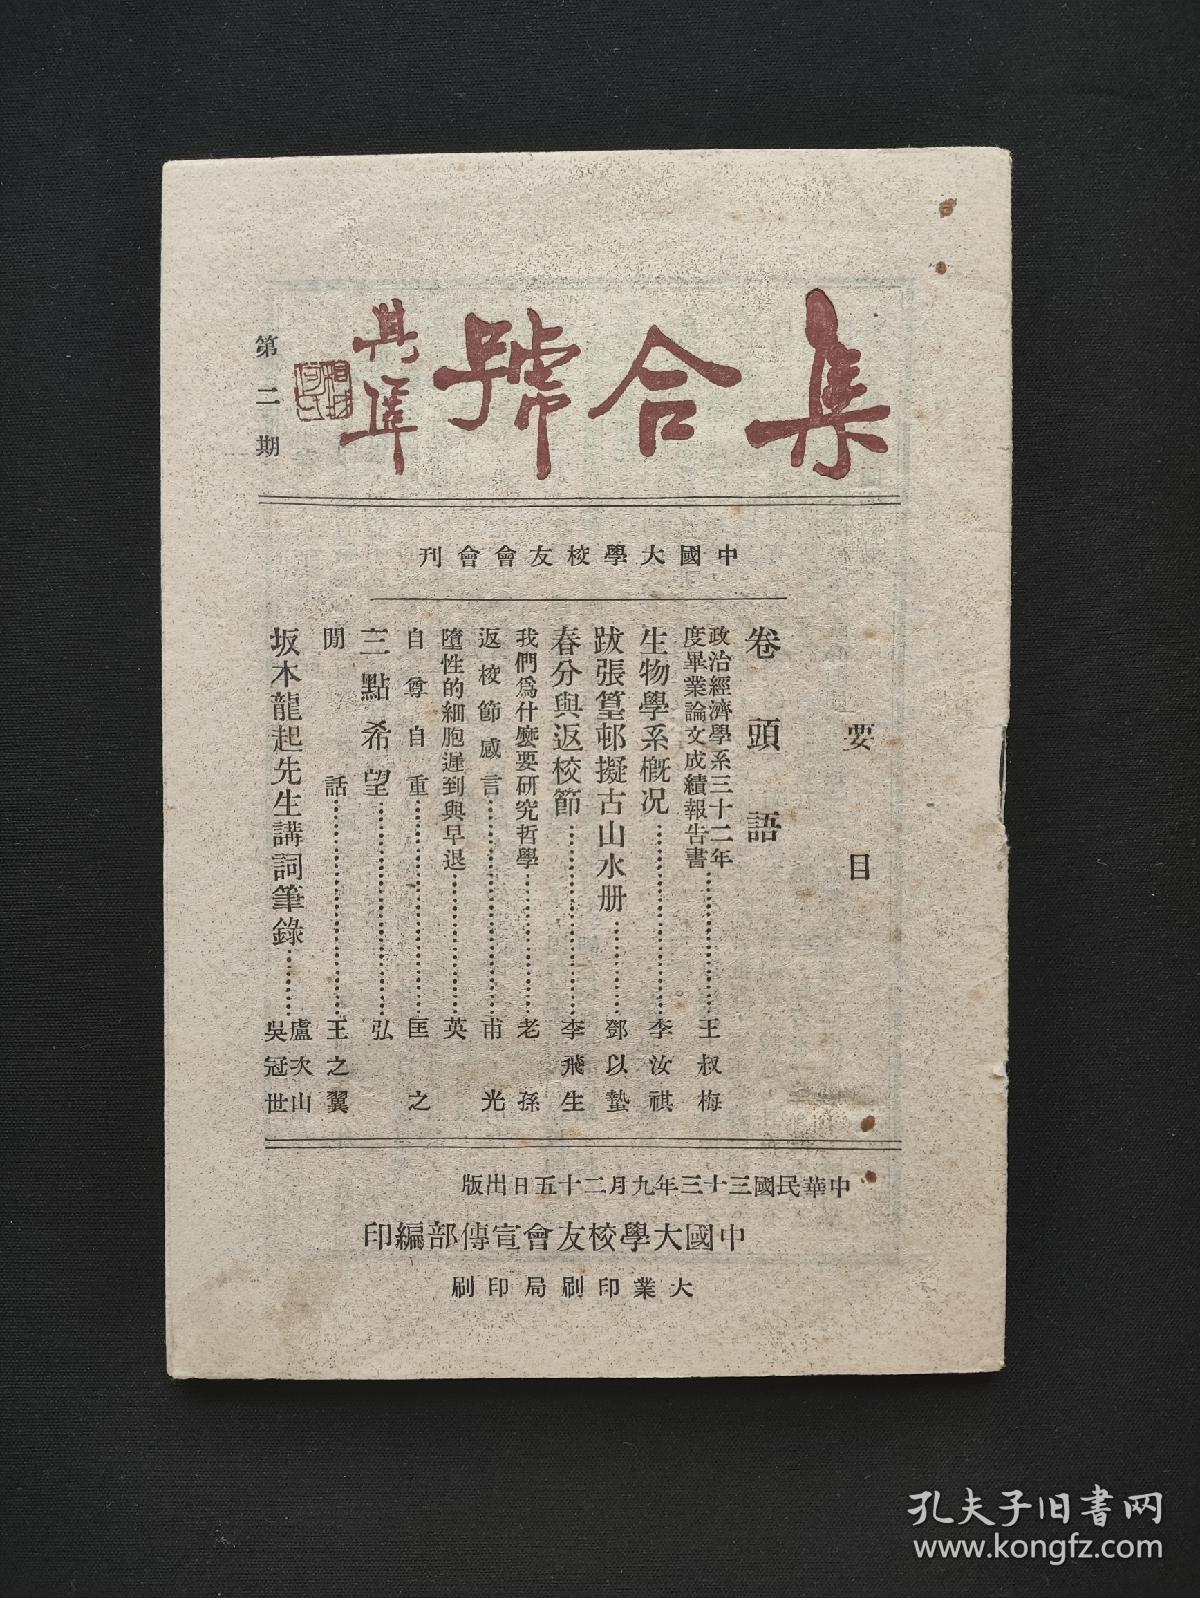 集合號
其鞏
第二期
中國大學校友會會刊
要目
卷頭語
政治經濟學系三十二年
度畢業論文成績報告書……王叔梅
生物學系概況……李汝祺
跋張篁邨擬古山水册……鄧以蟄
春分與返校節……李飛生
我們爲什麼要研究哲學……老孫
返校節感言……甫光
墮性的細胞遲到與早退……英
自尊自重……匡之
三點希望……弘
閒話……王之翼
坂本龍起先生講詞筆錄……盧次山
吳冠世
中華民國三十三年九月二十五日出版
中國大學校友會宣傳部編印
大業印刷局印刷
孔夫子旧書网
www.kongfz.com